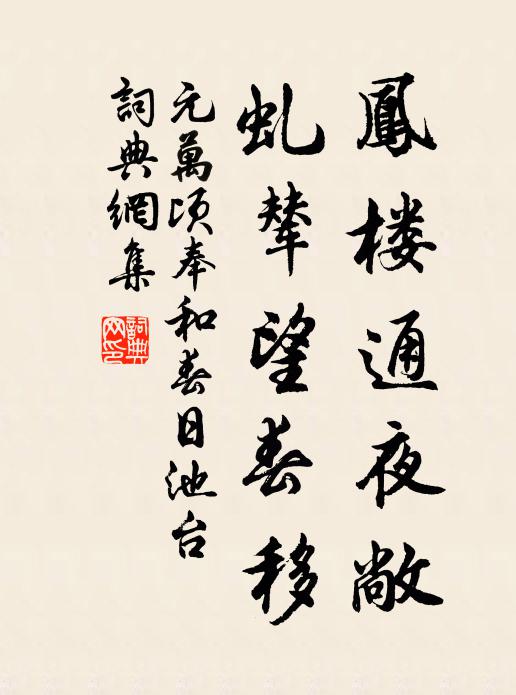 鳳楼通夜敞
虬輦望春移
元萬頃奉和春日池台
詞典網集
詞典网印